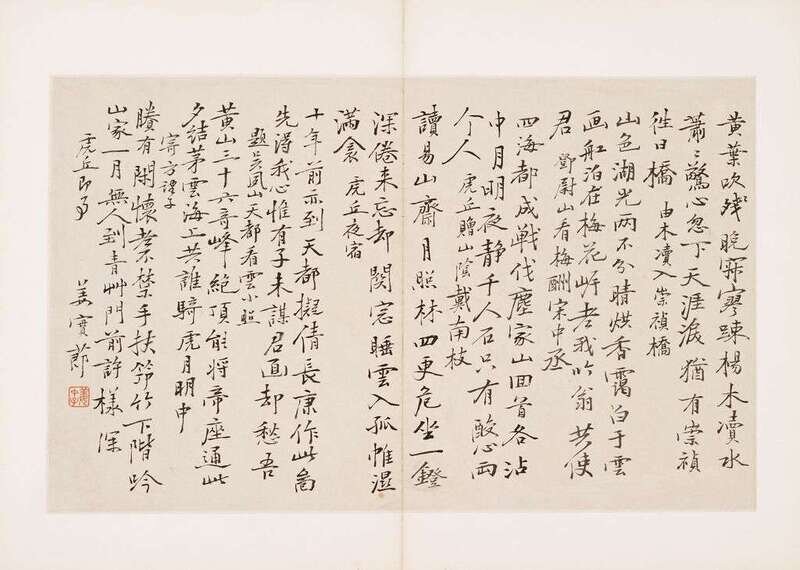 黄葉吹殘晚寂寥踈楊木瀆水
蕭〻驚心忽下天涯淚猶有崇禎
往日橋 由木瀆入崇禎橋
山色湖光两不分晴烘香靄白于雲
画船泊在梅花岓老我吟翁共使
君 鄧尉山看梅酬宋中丞
四海都成戰伐塵家山回首各沾
巾月明夜静千人石只有酸心两
个人 虎丘贈山陰戴南枝
讀易山齋月照林四更危坐一鐙
深倦来忘却関窓睡雲入孤帷濕
滿衾 虎丘夜宿
十年前亦到天都擬倩長康作此啚
先得我心惟有子未謀君面却愁吾
題吴鳳山天都看雲小照
黄山三十六奇峰絶頂能將帝座通此
夕結茅雲海上共誰騎虎月明中
寄方望子
賸有閑懷老不禁手扶笻竹下階吟
山家一月無人到青艸門前許樣深
虎丘即事
姜實節